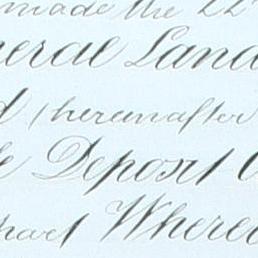 made the 22
neral Land
d (hereinafter
e Deposit
part Where